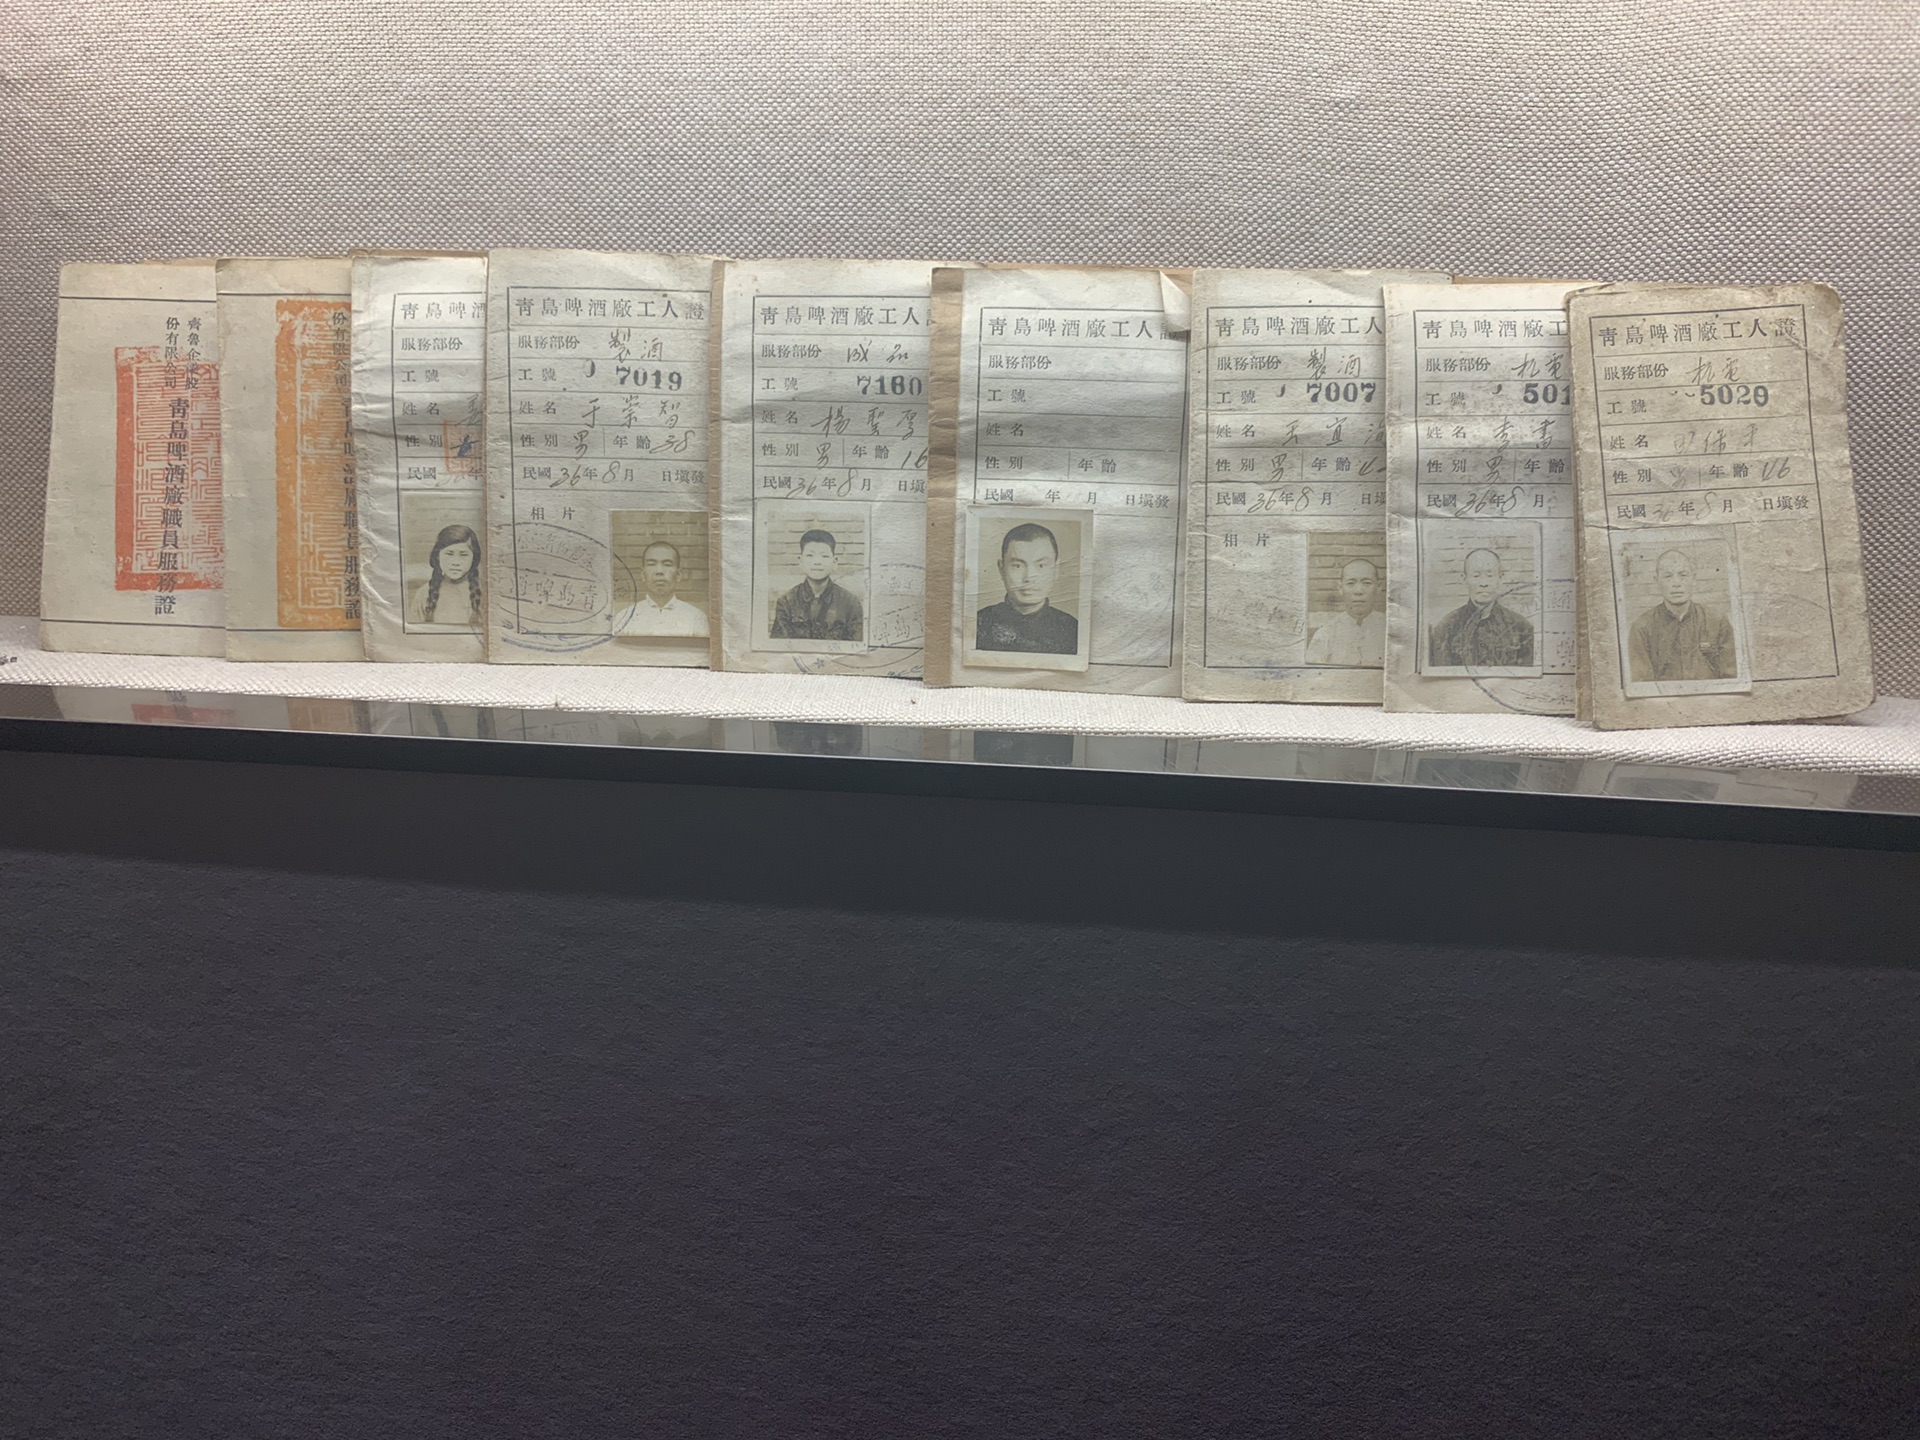 齊魯企業股
份有限公司
靑島啤酒廠職員服務證
份有限公司
靑島啤酒廠職員服務證
靑島啤酒
服務部份
工號
姓名
性別 女
民國 年
靑島啤酒廠工人證
服務部份 製酒
工號 7019
姓名 于崇智
性別 男 年齡 38
民國36年8月 日塡發
相片
靑島啤酒廠工人
服務部份 成品
工號 7160
姓名 楊聖
性別 男 年齡 16
民國36年8月 日塡
靑島啤酒廠工人
服務部份
工號
姓名
性別 年齡
民國 年 月 日塡發
靑島啤酒廠工人
服務部份 製酒
工號 7007
姓名 王宜
性別 男 年齡
民國36年8月 日塡
相片
靑島啤酒廠工
服務部份 机電
工號 501
姓名 李書
性別 男 年齡
民國36年8月
靑島啤酒廠工人證
服務部份 机電
工號 5029
姓名
性別 男 年齡 46
民國36年8月 日塡發